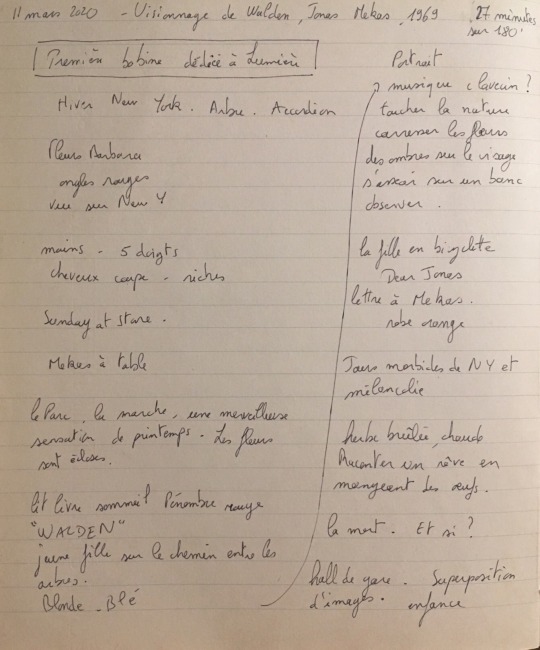 11 mars 2020 - Visionnage de Walden, Jonas Mekas, 1969
27 minutes
sur 180'
Première bobine dédiée à Lumière
Hiver New York. Arbre. Accordéon
Fleurs Barbara
ongles rouges
vue sur New Y
mains - 5 doigts
cheveux coupe - riches
Sunday at Stone.
Mekas à table
le Parc, la marche, une merveilleuse
sensation de printemps - Les fleurs
sont écloses.
lit livre sommeil Pénombre rouge
"WALDEN"
jeune fille sur le chemin entre les
arbres.
Blonde - Blé
Portrait
musique clavecin ?
toucher la nature
carresser les fleurs
des ombres sur le visage
s'assoir sur un banc
observer.
la fille en bicyclette
Dear Jonas
lettre à Mekas.
robe orange
Jours morbides de NY et
mélancolie
herbe brûlée, chaude
Raconter un rêve en
mangeant des œufs.
la mort. Et si ?
hall de gare. Superposition
d'images. enfance